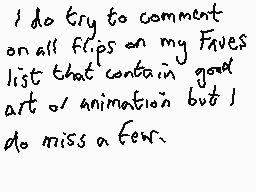 I do try to comment
on all flips on my Faves
list that contain good
art or animation but I
do miss a few.